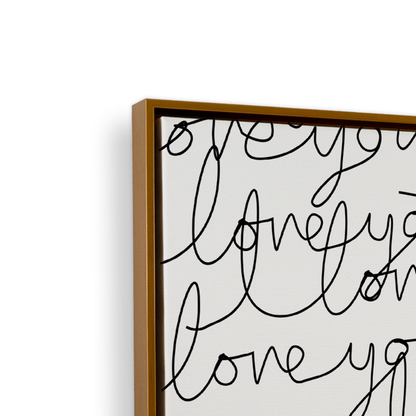 love you
love yo
I lov
love yo